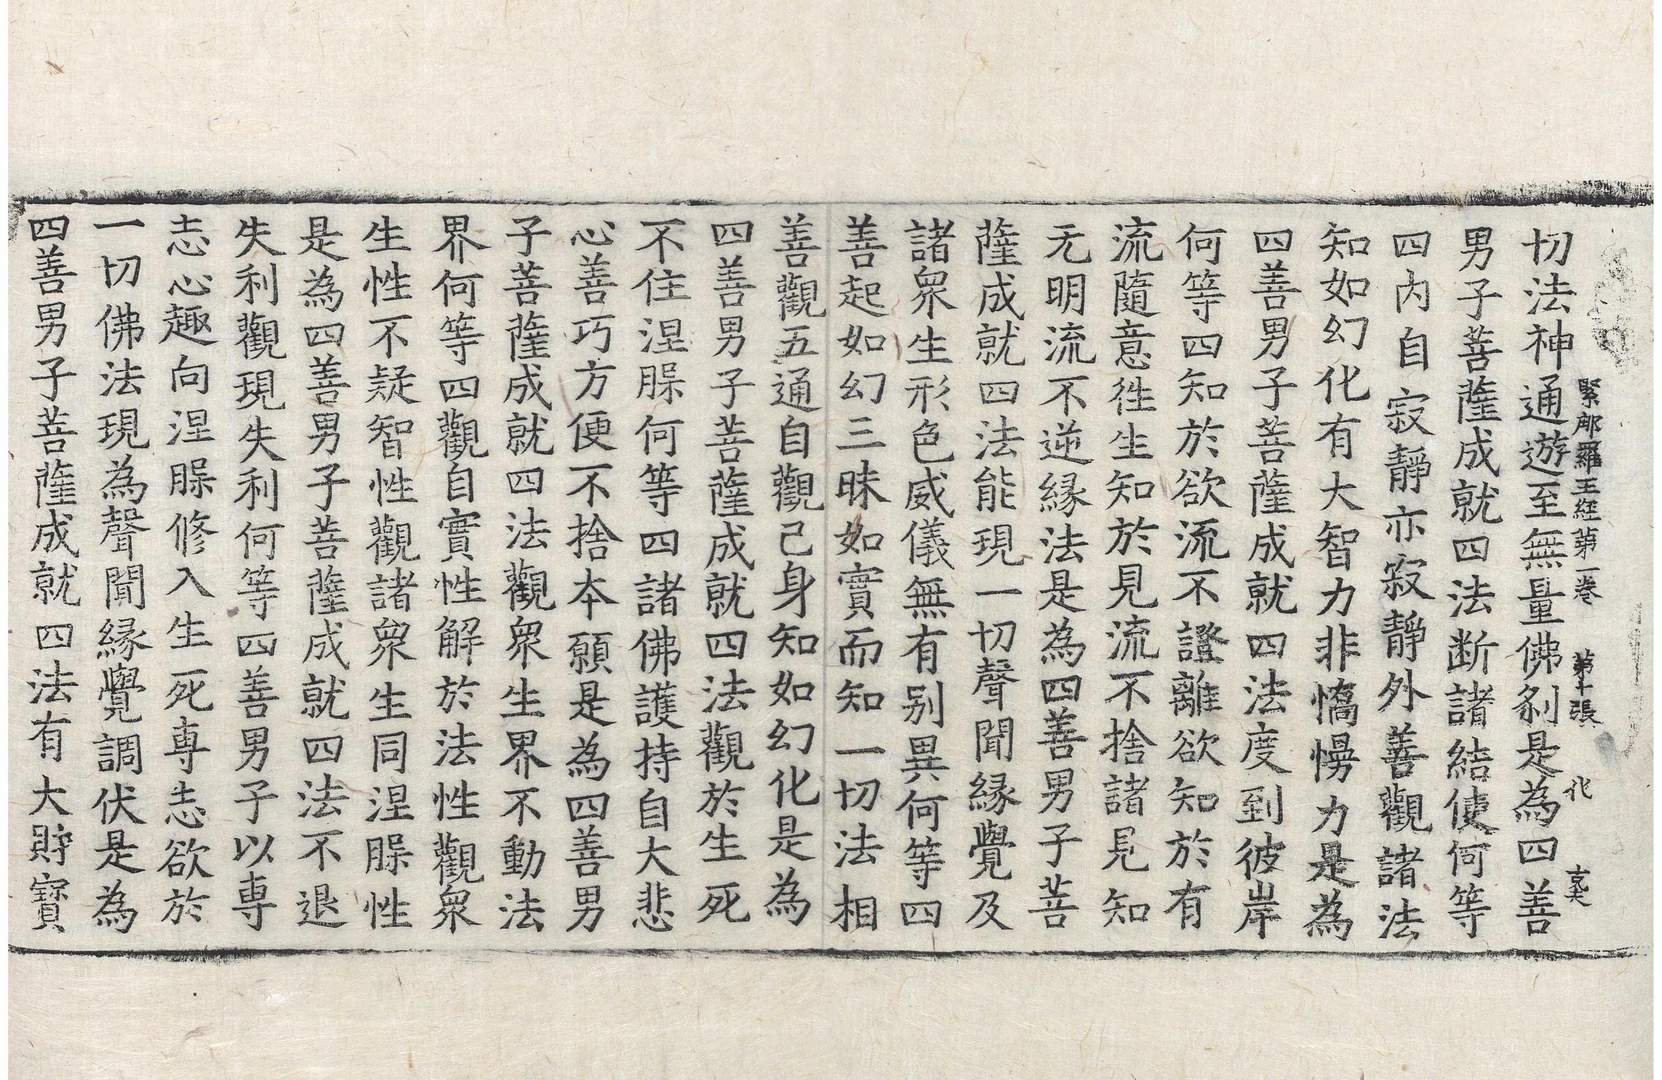 緊那羅王經第一卷 第十張 化
切法神通遊至無量佛刹是為四善
男子菩薩成就四法断諸結使何等
四内自寂靜亦寂靜外善觀諸法
知如幻化有大智力非憍慢力是為
四善男子菩薩成就四法度到彼岸
何等四知於欲流不證離欲知於有
流隨意徃生知於見流不捨諸見知
无明流不逆縁法是為四善男子菩
薩成就四法能現一切聲聞縁覺及
諸衆生形色威儀無有别異何等四
善起如幻三昧如實而知一切法相
善觀五通自觀己身知如幻化是為
四善男子菩薩成就四法觀於生死
不住涅槃何等四諸佛護持自大悲
心善巧方便不捨本願是為四善男
子菩薩成就四法觀衆生界不動法
界何等四觀自實性解於法性觀衆
生性不疑智性觀諸衆生同涅槃性
是為四善男子菩薩成就四法不退
失利觀現失利何等四善男子以専
志心趣向涅槃修入生死専志欲於
一切佛法現為聲聞縁覺調伏是為
四善男子菩薩成就四法有大貯寶